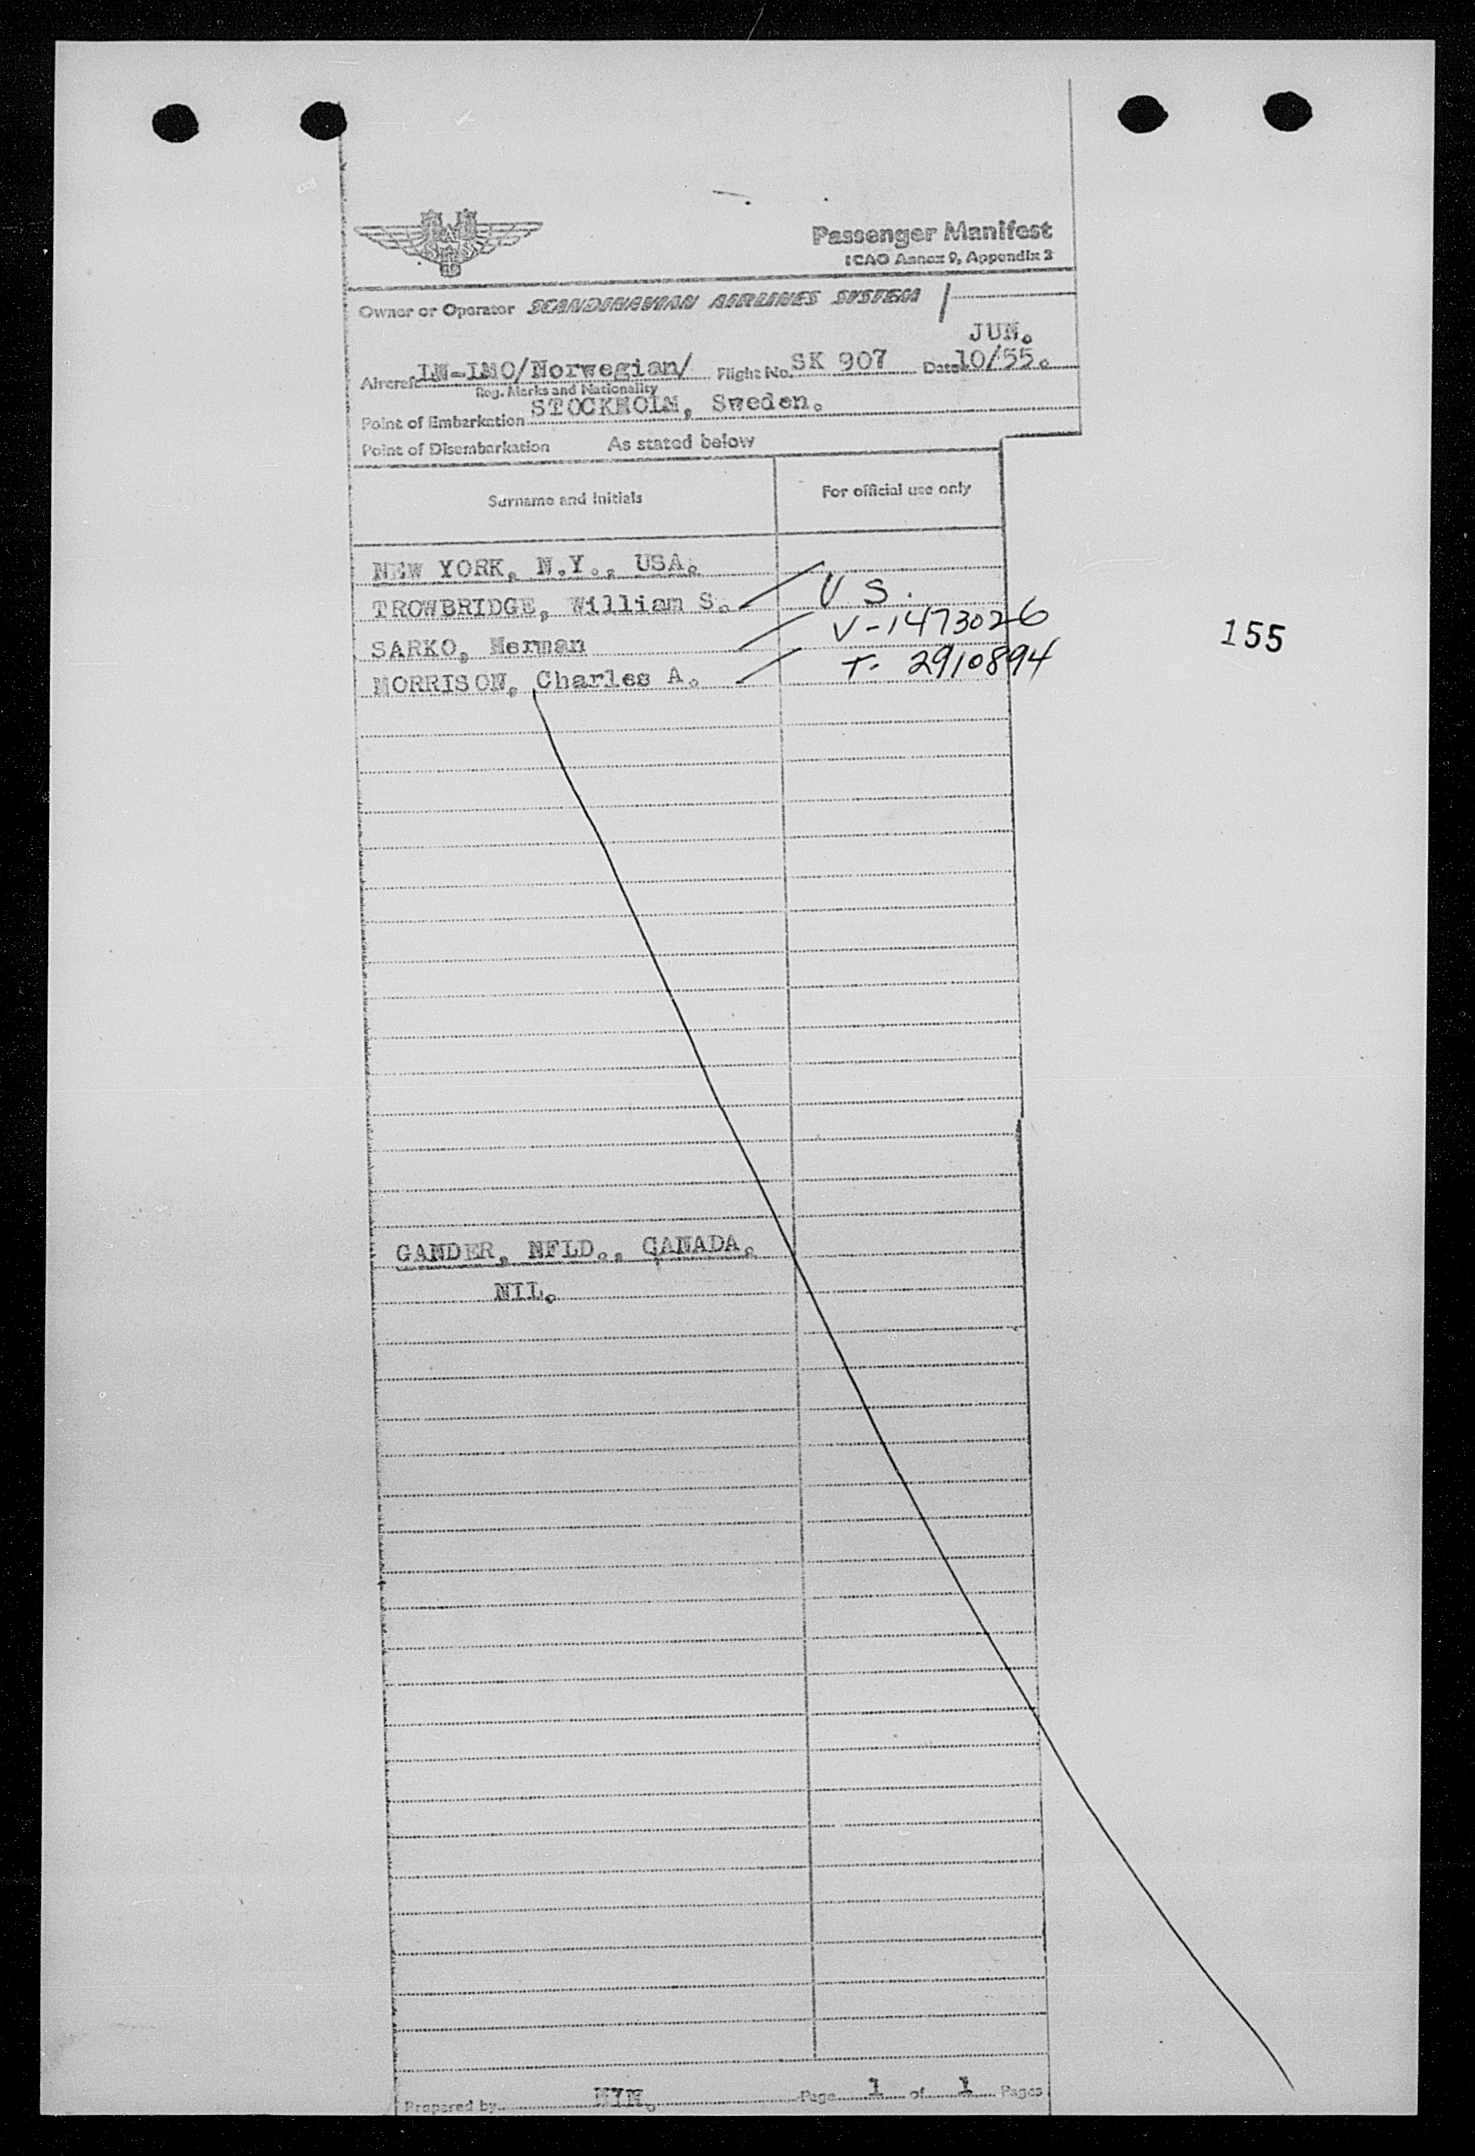 Passenger Manifest
ICAO Annex 9, Appendix 3
Owner or Operator SCANDINAVIAN AIRLINES SYSTEM
JUN.
Aircraft LN-LMO/Norwegian/ Flight No. SK 907 Date 10/55.
Reg. Marks and Nationality
Point of Embarkation STOCKHOLM, Sweden.
Point of Disembarkation As stated below
Surname and Initials For official use only
NEW YORK, N.Y., USA.
TROWBRIDGE, William S. U S.
SARKO, Herman V-1473026
155
MORRISON, Charles A. T. 2910894
GANDER, NFLD., CANADA.
NIL.
Prepared by Page 1 of 1 Pages